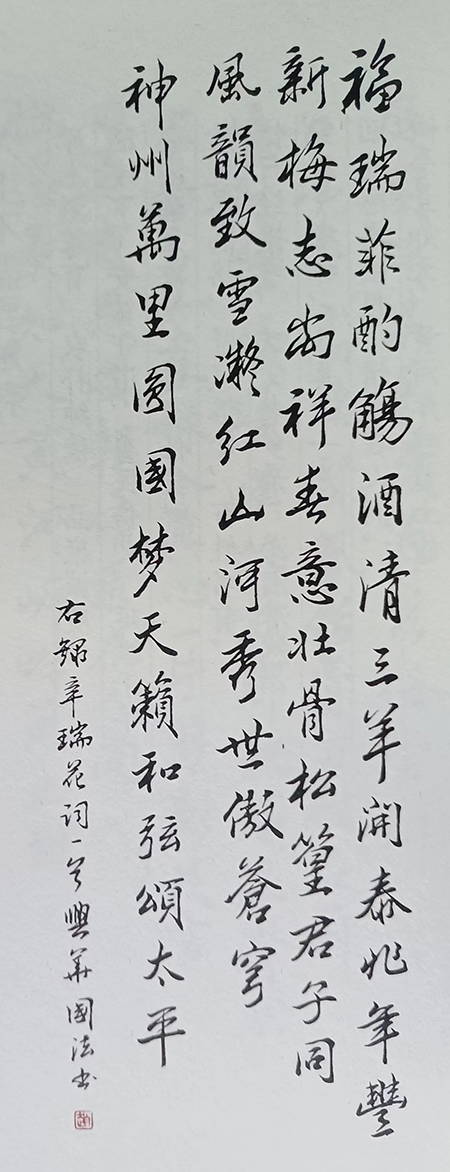 福瑞菲酌觴酒清三羊開泰兆年豐
新梅志尚祥春意壮骨松篁君子同
風韻致雪凝红山河秀世傲蒼穹
神州萬里圆國梦天籟和弦頌太平
右錄辛瑞花词一首興華國法书